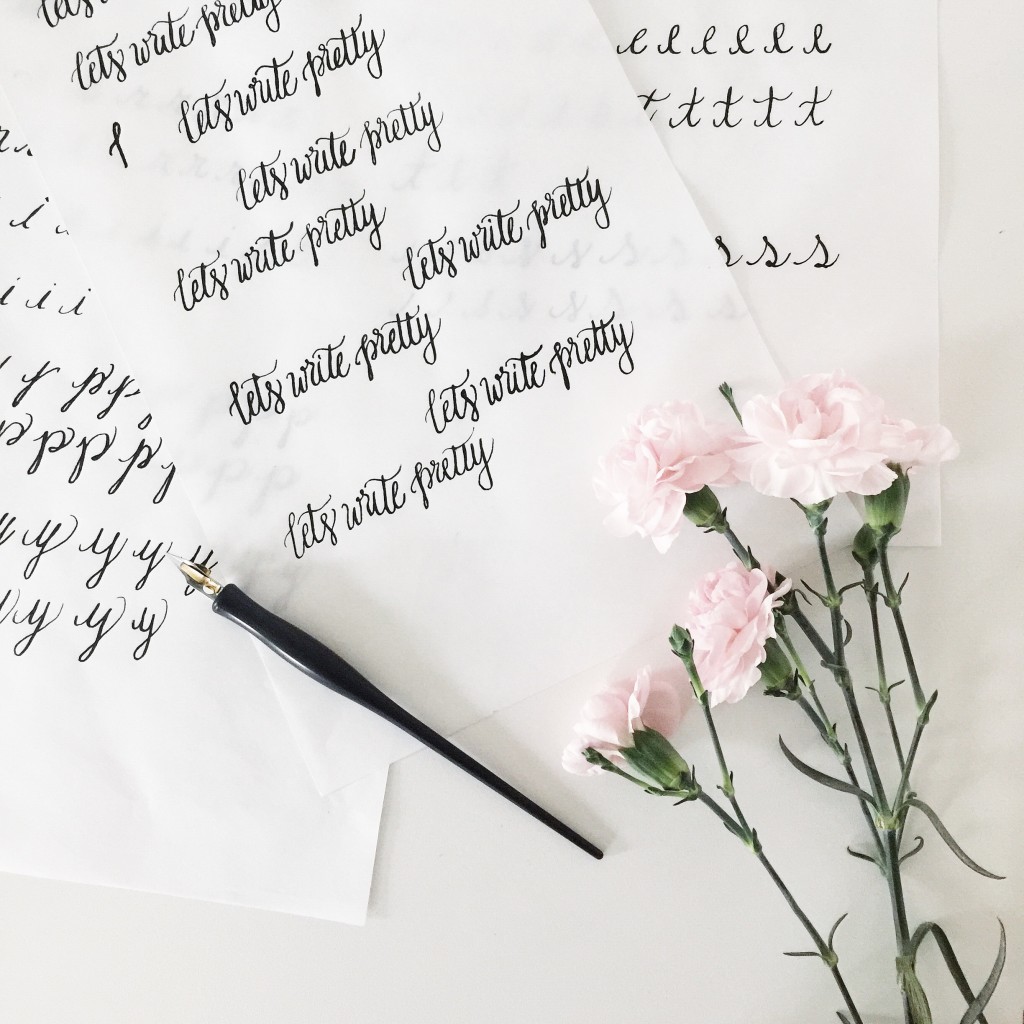 lets
lets write pretty
lets write pretty
lets write pretty
lets write pretty
lets write pretty
lets write pretty
lets write pretty
lets write pretty
l
e e e e e e
t t t t t
s s s
i
i i i
p p
p p p p
y y y y y
y y y y